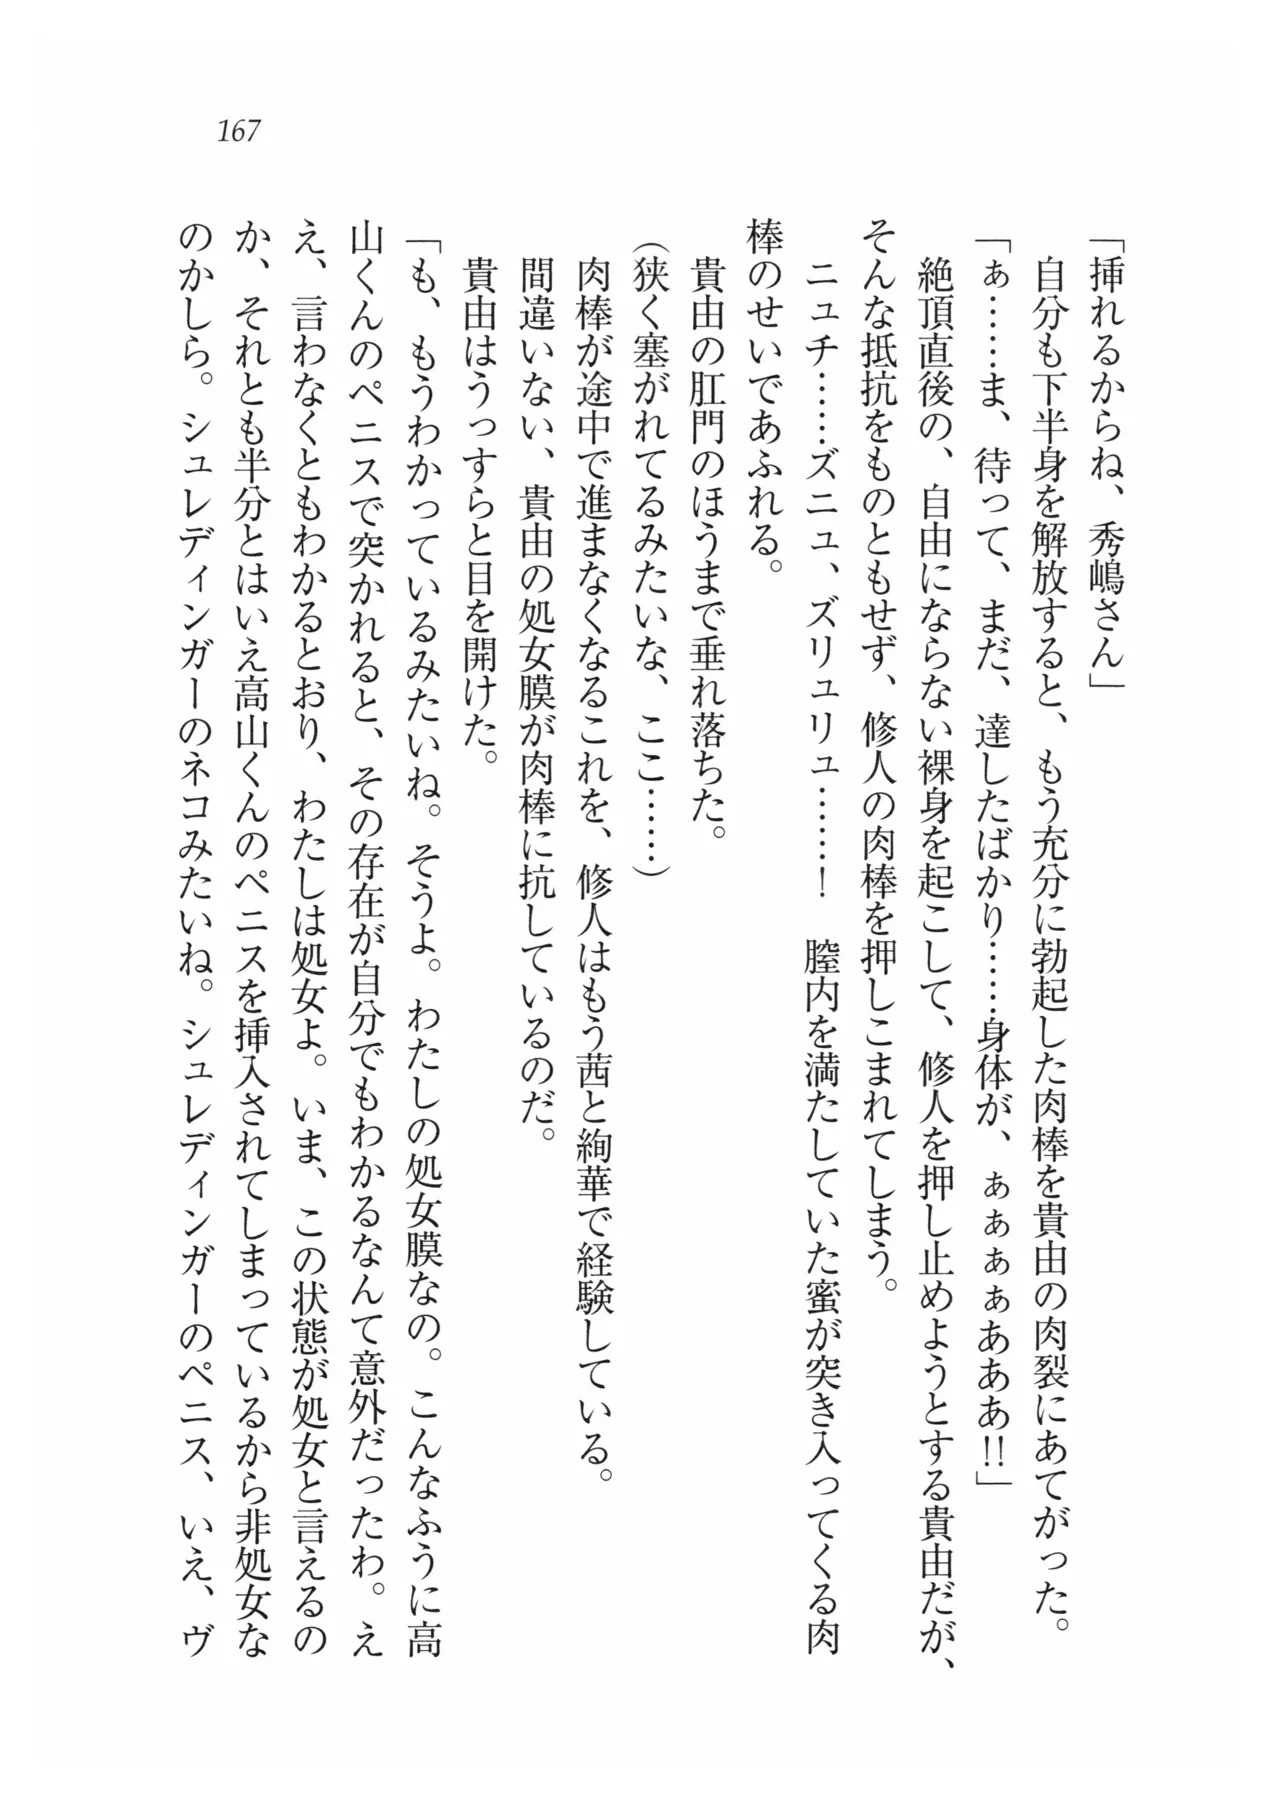 167
「挿れるからね、秀嶋さん」
自分も下半身を解放すると、もう充分に勃起した肉棒を貴由の肉裂にあてがった。
「ぁ……ま、待って、まだ、達したばかり……身体が、ぁぁぁぁあああ!!」
絶頂直後の、自由にならない裸身を起こして、修人を押し止めようとする貴由だが、
そんな抵抗をものともせず、修人の肉棒を押しこまれてしまう。
ニュチ……ズニュ、ズリュリュ……！　膣内を満たしていた蜜が突き入ってくる肉
棒のせいであふれる。
貴由の肛門のほうまで垂れ落ちた。
（狭く塞がれてるみたいな、ここ……）
肉棒が途中で進まなくなるこれを、修人はもう茜と絢華で経験している。
間違いない、貴由の処女膜が肉棒に抗しているのだ。
貴由はうっすらと目を開けた。
「も、もうわかっているみたいね。そうよ。わたしの処女膜なの。こんなふうに高
山くんのペニスで突かれると、その存在が自分でもわかるなんて意外だったわ。え
え、言わなくともわかるとおり、わたしは処女よ。いま、この状態が処女と言えるの
か、それとも半分とはいえ高山くんのペニスを挿入されてしまっているから非処女な
のかしら。シュレディンガーのネコみたいね。シュレディンガーのペニス、いえ、ヴ